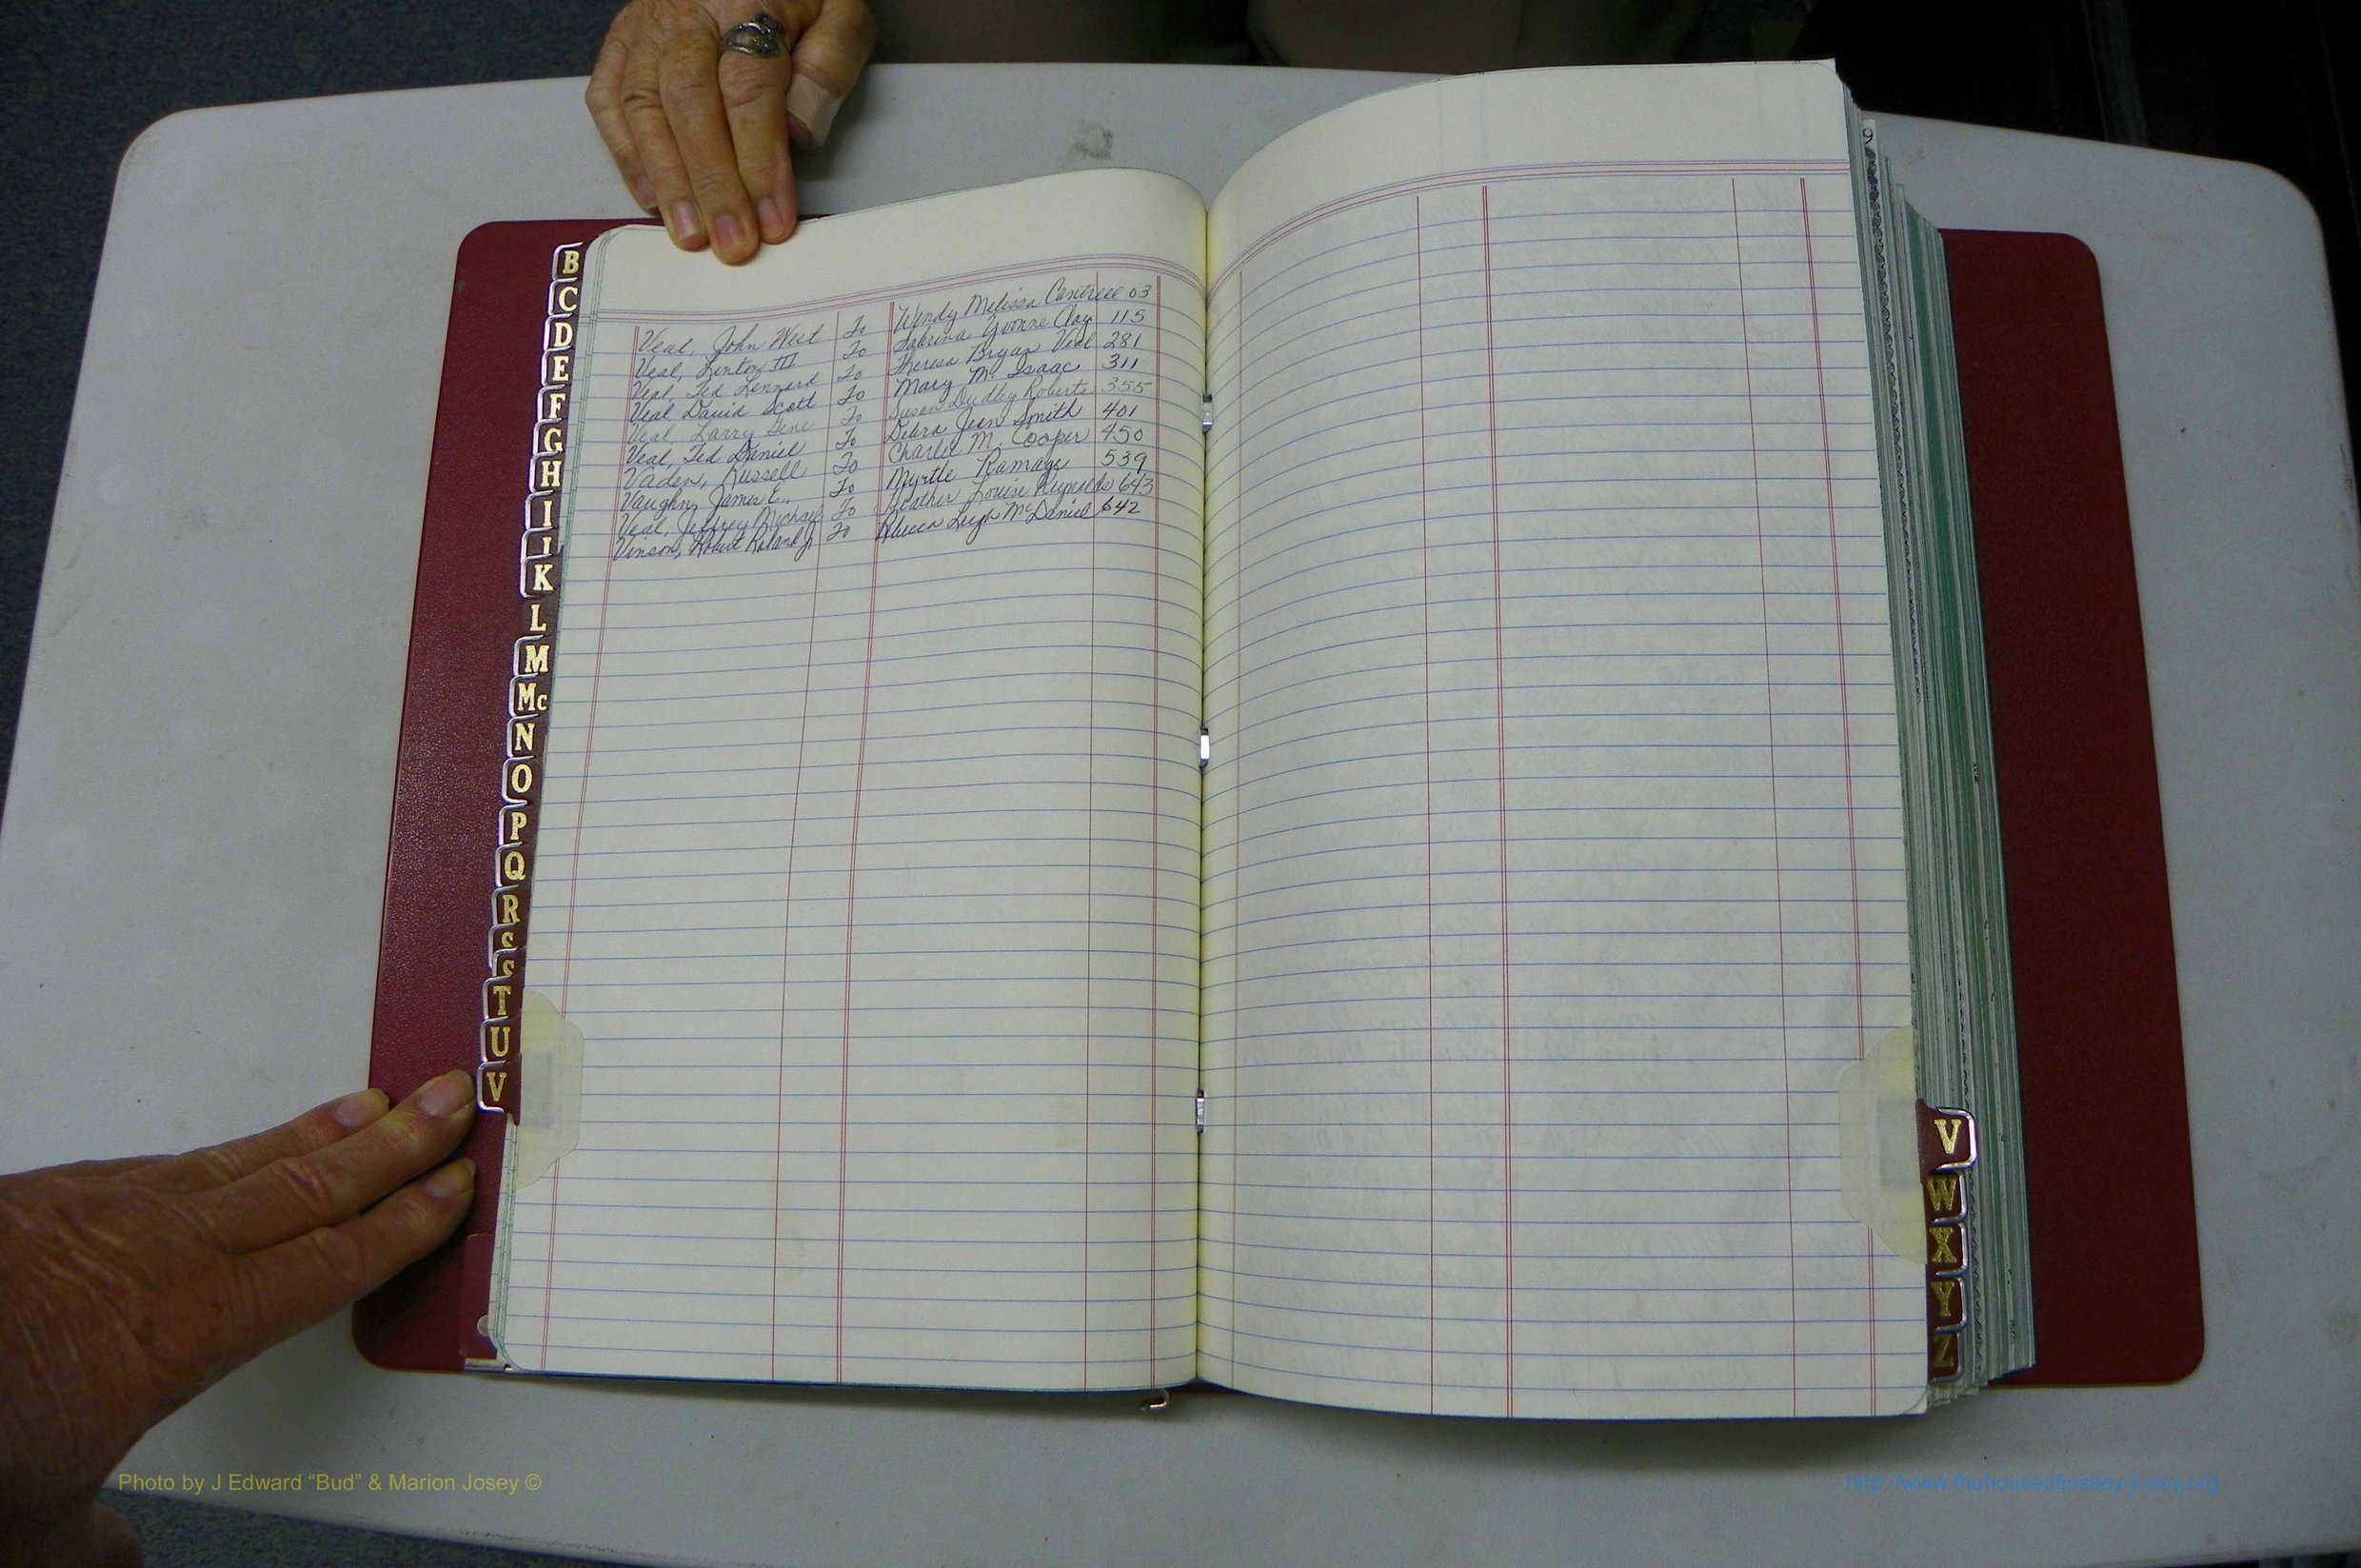 Veal, John West To Wendy Melissa Cantrell 03
Veal, Linton III To Sabrina Yvonne Clay 115
Veal, Ted Lennard To Theresa Bryan Veal 281
Veal David Scott To Mary M. Isaac 311
Veal, Larry Gene To Susan Dudley Roberts 355
Veal, Ted Daniel To Debra Jean Smith 401
Vaden, Russell To Charlie M. Cooper 450
Vaughn, James E. To Myrtle Ramage 539
Veal, Jeffrey Michael To Heather Louise Reynolds 643
Vinson, Robert Roland Jr To Rebecca Leigh McDaniel 642
B
C
D
E
F
G
H
I
K
L
M
Mc
N
O
P
Q
R
S
S
T
U
V
V
W
X
Y
Z
Photo by J Edward “Bud” & Marion Josey ©
http://www.thehouseofjossey-josey.org